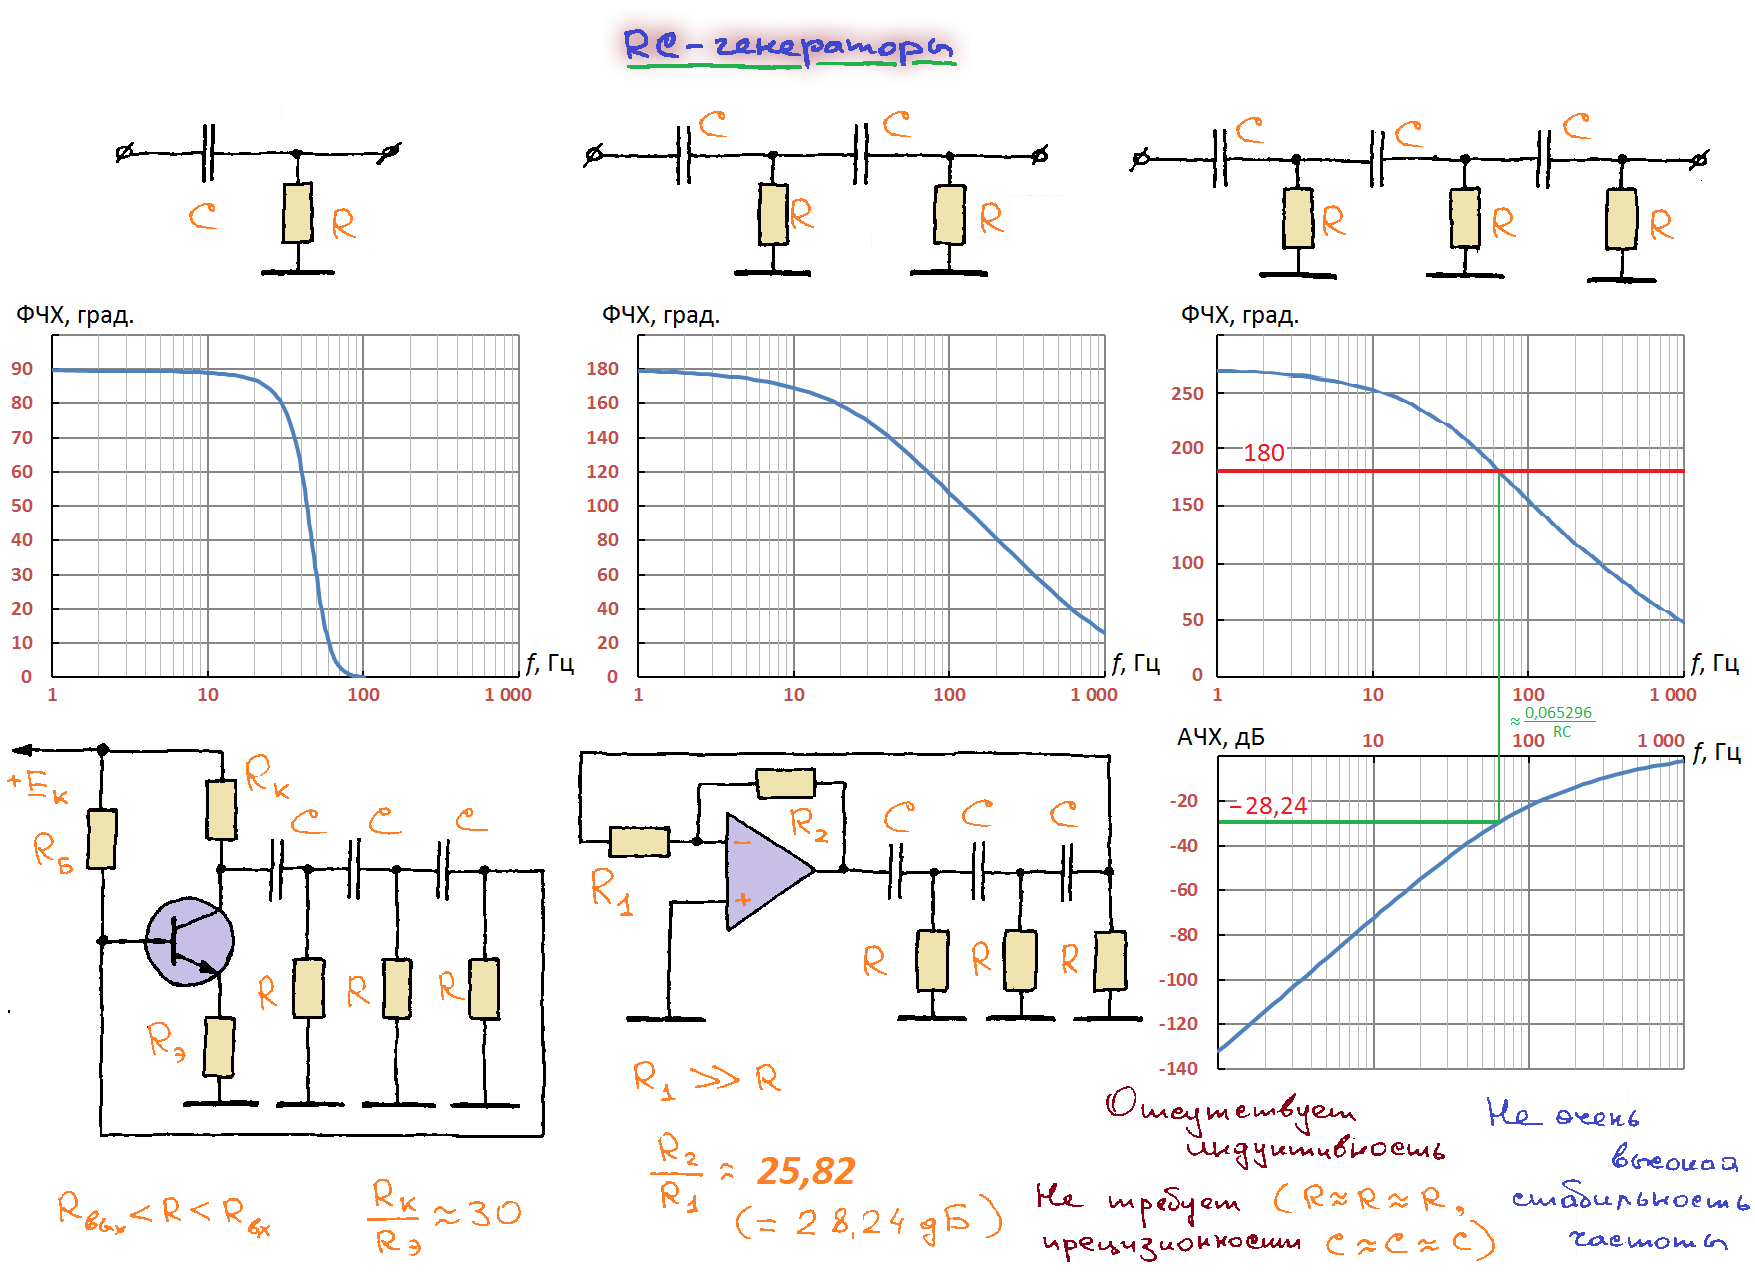 RC-генераторы
C
R
C
C
R
R
C
C
C
R
R
R
ФЧХ, град.
90
80
70
60
50
40
30
20
10
0
1
10
100
1 000
f, Гц
ФЧХ, град.
180
160
140
120
100
80
60
40
20
0
1
10
100
1 000
f, Гц
ФЧХ, град.
250
200
180
150
100
50
0
1
10
100
1 000
f, Гц
≈ 0,065296 / RC
АЧХ, дБ
10
100
1 000
f, Гц
-20
−28,24
-40
-60
-80
-100
-120
-140
+Eк
Rк
RБ
Rэ
C
C
C
R
R
R
Rвых < R < Rвх
Rк / Rэ ≈ 30
R1
R2
−
+
C
C
C
R
R
R
R1 >> R
R2 / R1 ≈ 25,82
(= 28,24 дБ)
Отсутствует
индуктивность
Не требует (R≈R≈R,
прецизионности C≈C≈C)
Не очень
высокая
стабильность
частоты